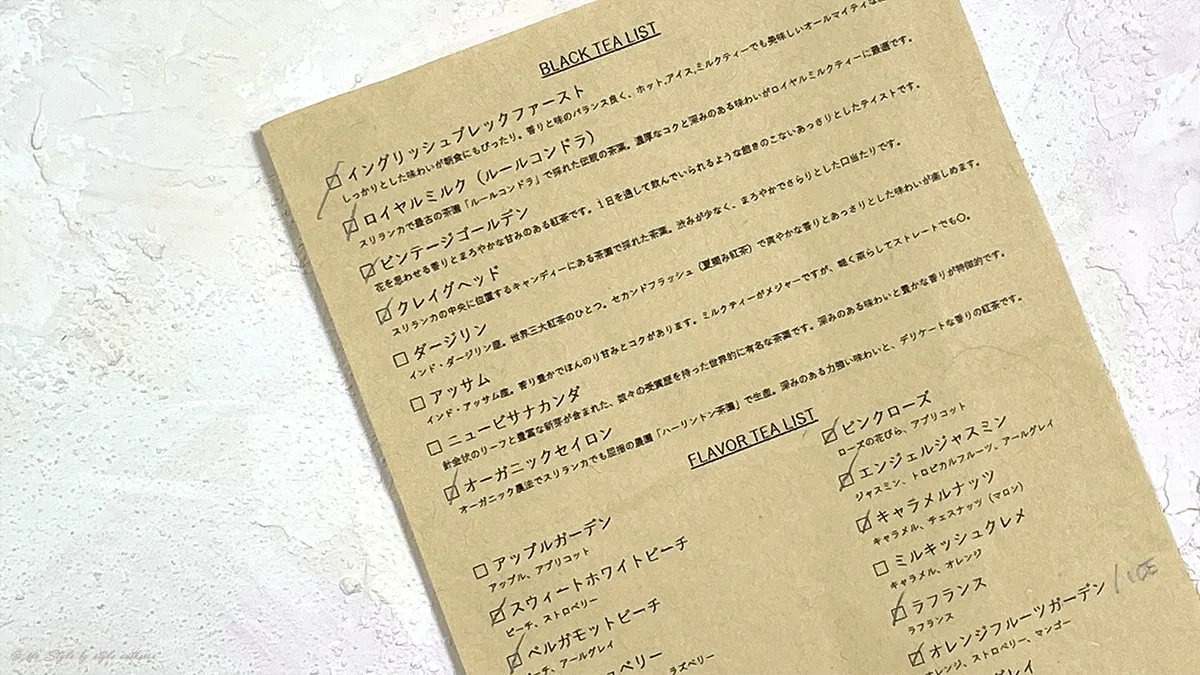 BLACK TEA LIST
イングリッシュブレックファースト
しっかりとした味わいが朝食にもぴったり。香りと味のバランス良く、ホット,アイス,ミルクティーでも美味しいオールマイティな
ロイヤルミルク（ルールコンドラ）
スリランカで最古の茶園「ルールコンドラ」で採れた伝説の茶葉。濃厚なコクと深みのある味わいがロイヤルミルクティーに最適です。
ビンテージゴールデン
花を思わせる香りとまろやかな甘みのある紅茶です。1日を通して飲んでいられるような飽きのこないあっさりとしたテイストです。
クレイグヘッド
スリランカの中央に位置するキャンディーにある茶園で採れた茶葉。渋みが少なく、まろやかでさらりとした口当たりです。
ダージリン
インド・ダージリン産。世界三大紅茶のひとつ。セカンドフラッシュ（夏摘み紅茶）で爽やかな香りとあっさりとした味わいが楽しめます。
アッサム
インド・アッサム産。香り豊かでほんのり甘みとコクがあります。ミルクティーがメジャーですが、軽く蒸らしてストレートでも〇。
ニュービサナカンダ
針金状のリーフと豊富な新芽が含まれた、数々の受賞歴を持った世界的に有名な茶葉です。深みのある味わいと豊かな香りが特徴的です。
オーガニックセイロン
オーガニック農法でスリランカでも屈指の農園「ハーリントン茶園」で生産。深みのある力強い味わいと、デリケートな香りの紅茶です。
FLAVOR TEA LIST
アップルガーデン
アップル、アプリコット
スウィートホワイトピーチ
ピーチ、ストロベリー
ベルガモットピーチ
ーチ、アールグレイ
ベリー
ラズベリー
ピンクローズ
ローズの花びら、アプリコット
エンジェルジャスミン
ジャスミン、トロピカルフルーツ、アールグレイ
キャラメルナッツ
キャラメル、チェスナッツ（マロン）
ミルキッシュクレメ
キャラメル、オレンジ
ラフランス
ラフランス
オレンジフルーツガーデン /ICE
オレンジ、ストロベリー、マンゴー
グレイ